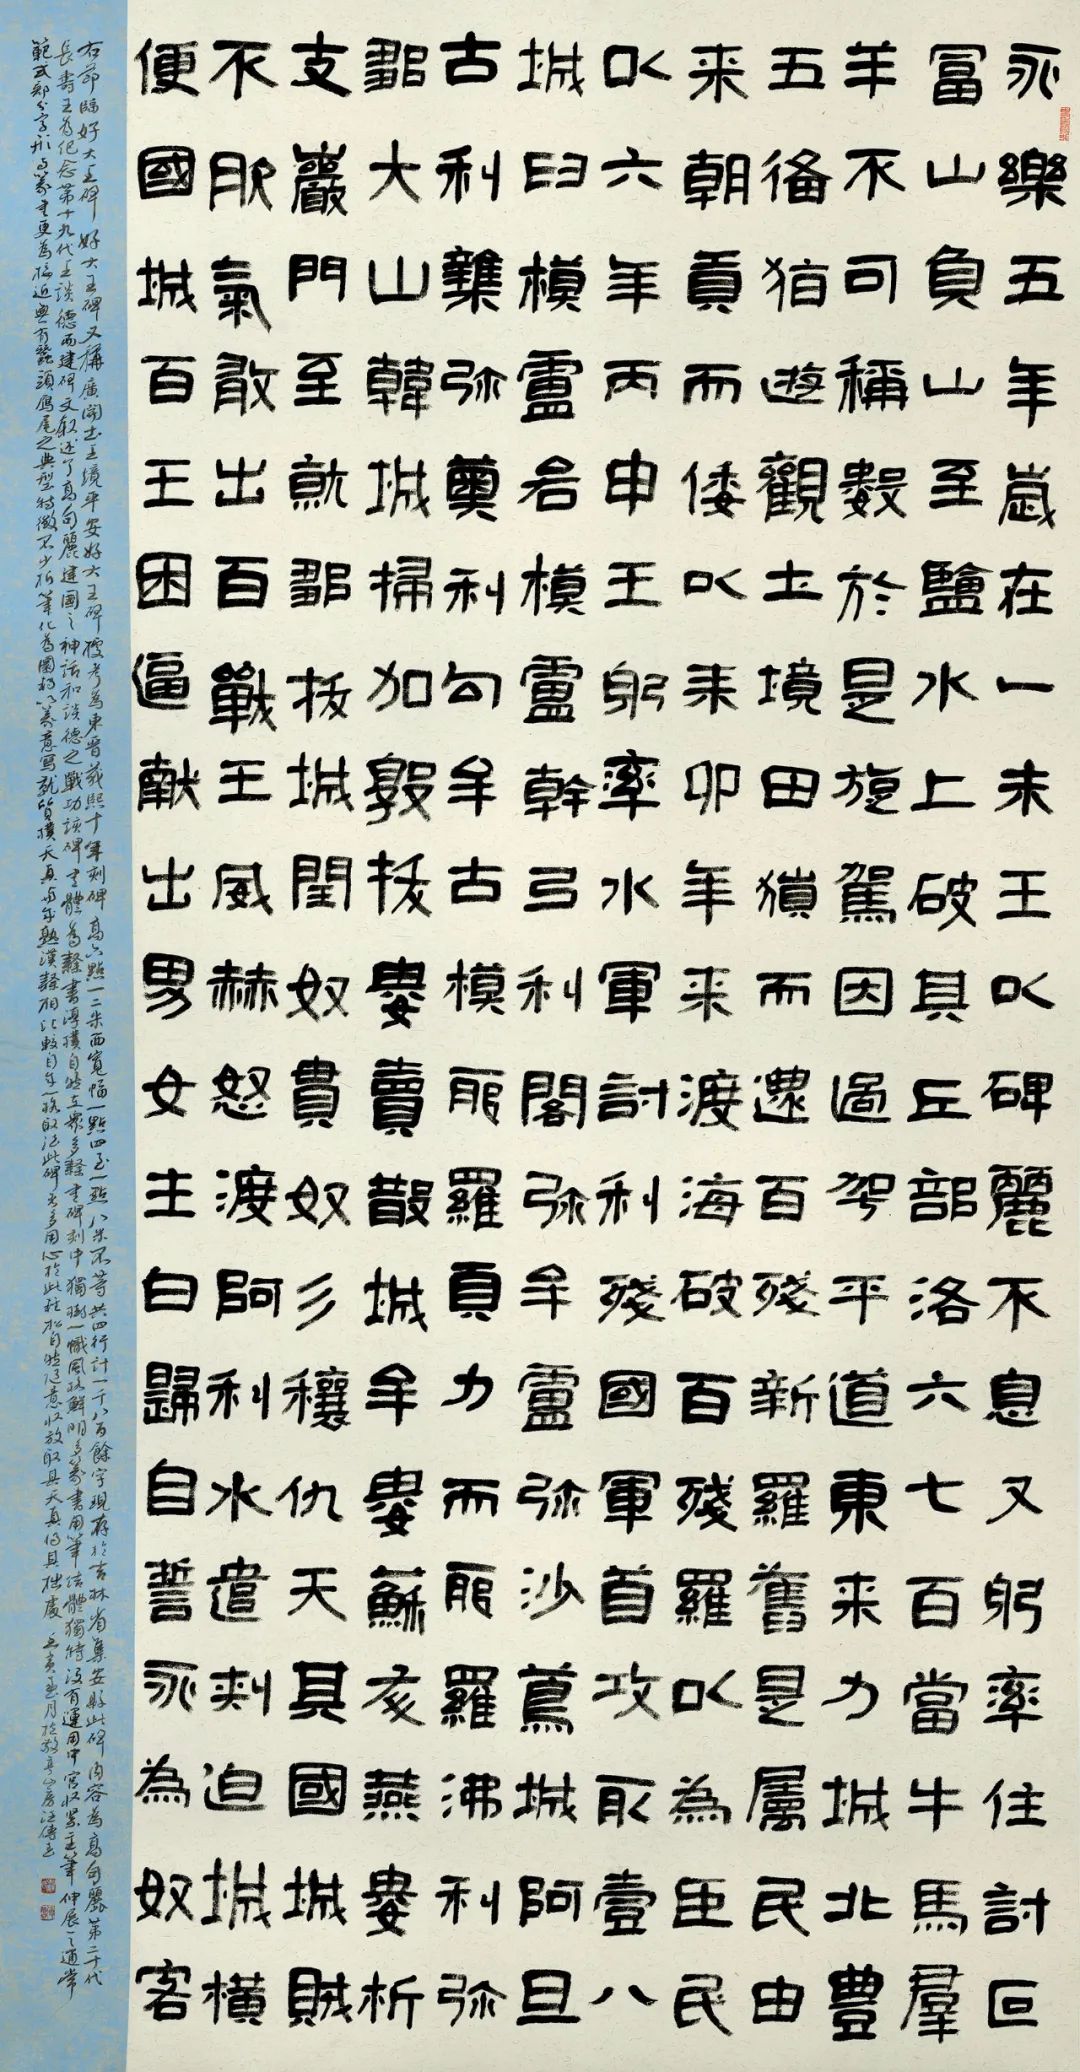 永樂五年歲在一未王以碑麗不息又躬率住討叵
富山負山至鹽水上破其丘部洛六七百當牛馬羣
羊不可稱數於是旋駕因過平道東来力城北豊
五備猶遊觀土境田獵而還百殘新羅舊是属民由
来朝貢而倭以耒卯年来渡海破百殘羅以為臣民
以六年丙申王躬率水軍討利殘國軍首攻取壹八
城臼模盧各模盧幹弓利閣弥牟盧弥沙蔦城阿旦
古利雜弥奧利勾牟古模耶羅頁力而耶羅沸利弥
鄒大山韓城掃加敦拔婁賣散城牟婁蘇灰燕婁析
支巖門至就鄒拔城閏奴貴奴彡穰仇天其國城賊
不服氣敢出百戰王威赫怒渡阿利水遣刺迫城橫
便國城百王困逼獻出男女主白歸自誓永為奴客
右節臨好大王碑 好大王碑又稱廣開土王境平安好大王碑據考為東晉義熙十年刻碑高六點一二米面寬幅一點四至一點八米不等共四行計一千八百餘字現存於吉林省集安縣此碑內容為高句麗第二十代
長壽王為紀念第十九代王談德而建碑文叙述了高句麗建國之神話和談德之戰功該碑書體為隸書淳樸自然在眾多隸書碑刻中獨樹一幟風格鮮明多篆書用筆結體獨特沒有運用中宮收緊主筆伸展之通常
範式部分字形与篆書更為接近無有蠶頭雁尾之典型特徵不少折筆化為圓轉以篆意寫就質樸天真与成熟漢隸相比較自成一格取法此碑多用心於此自然隨意收放取其天真得其拙處 壬寅五月於敬亭山房汪